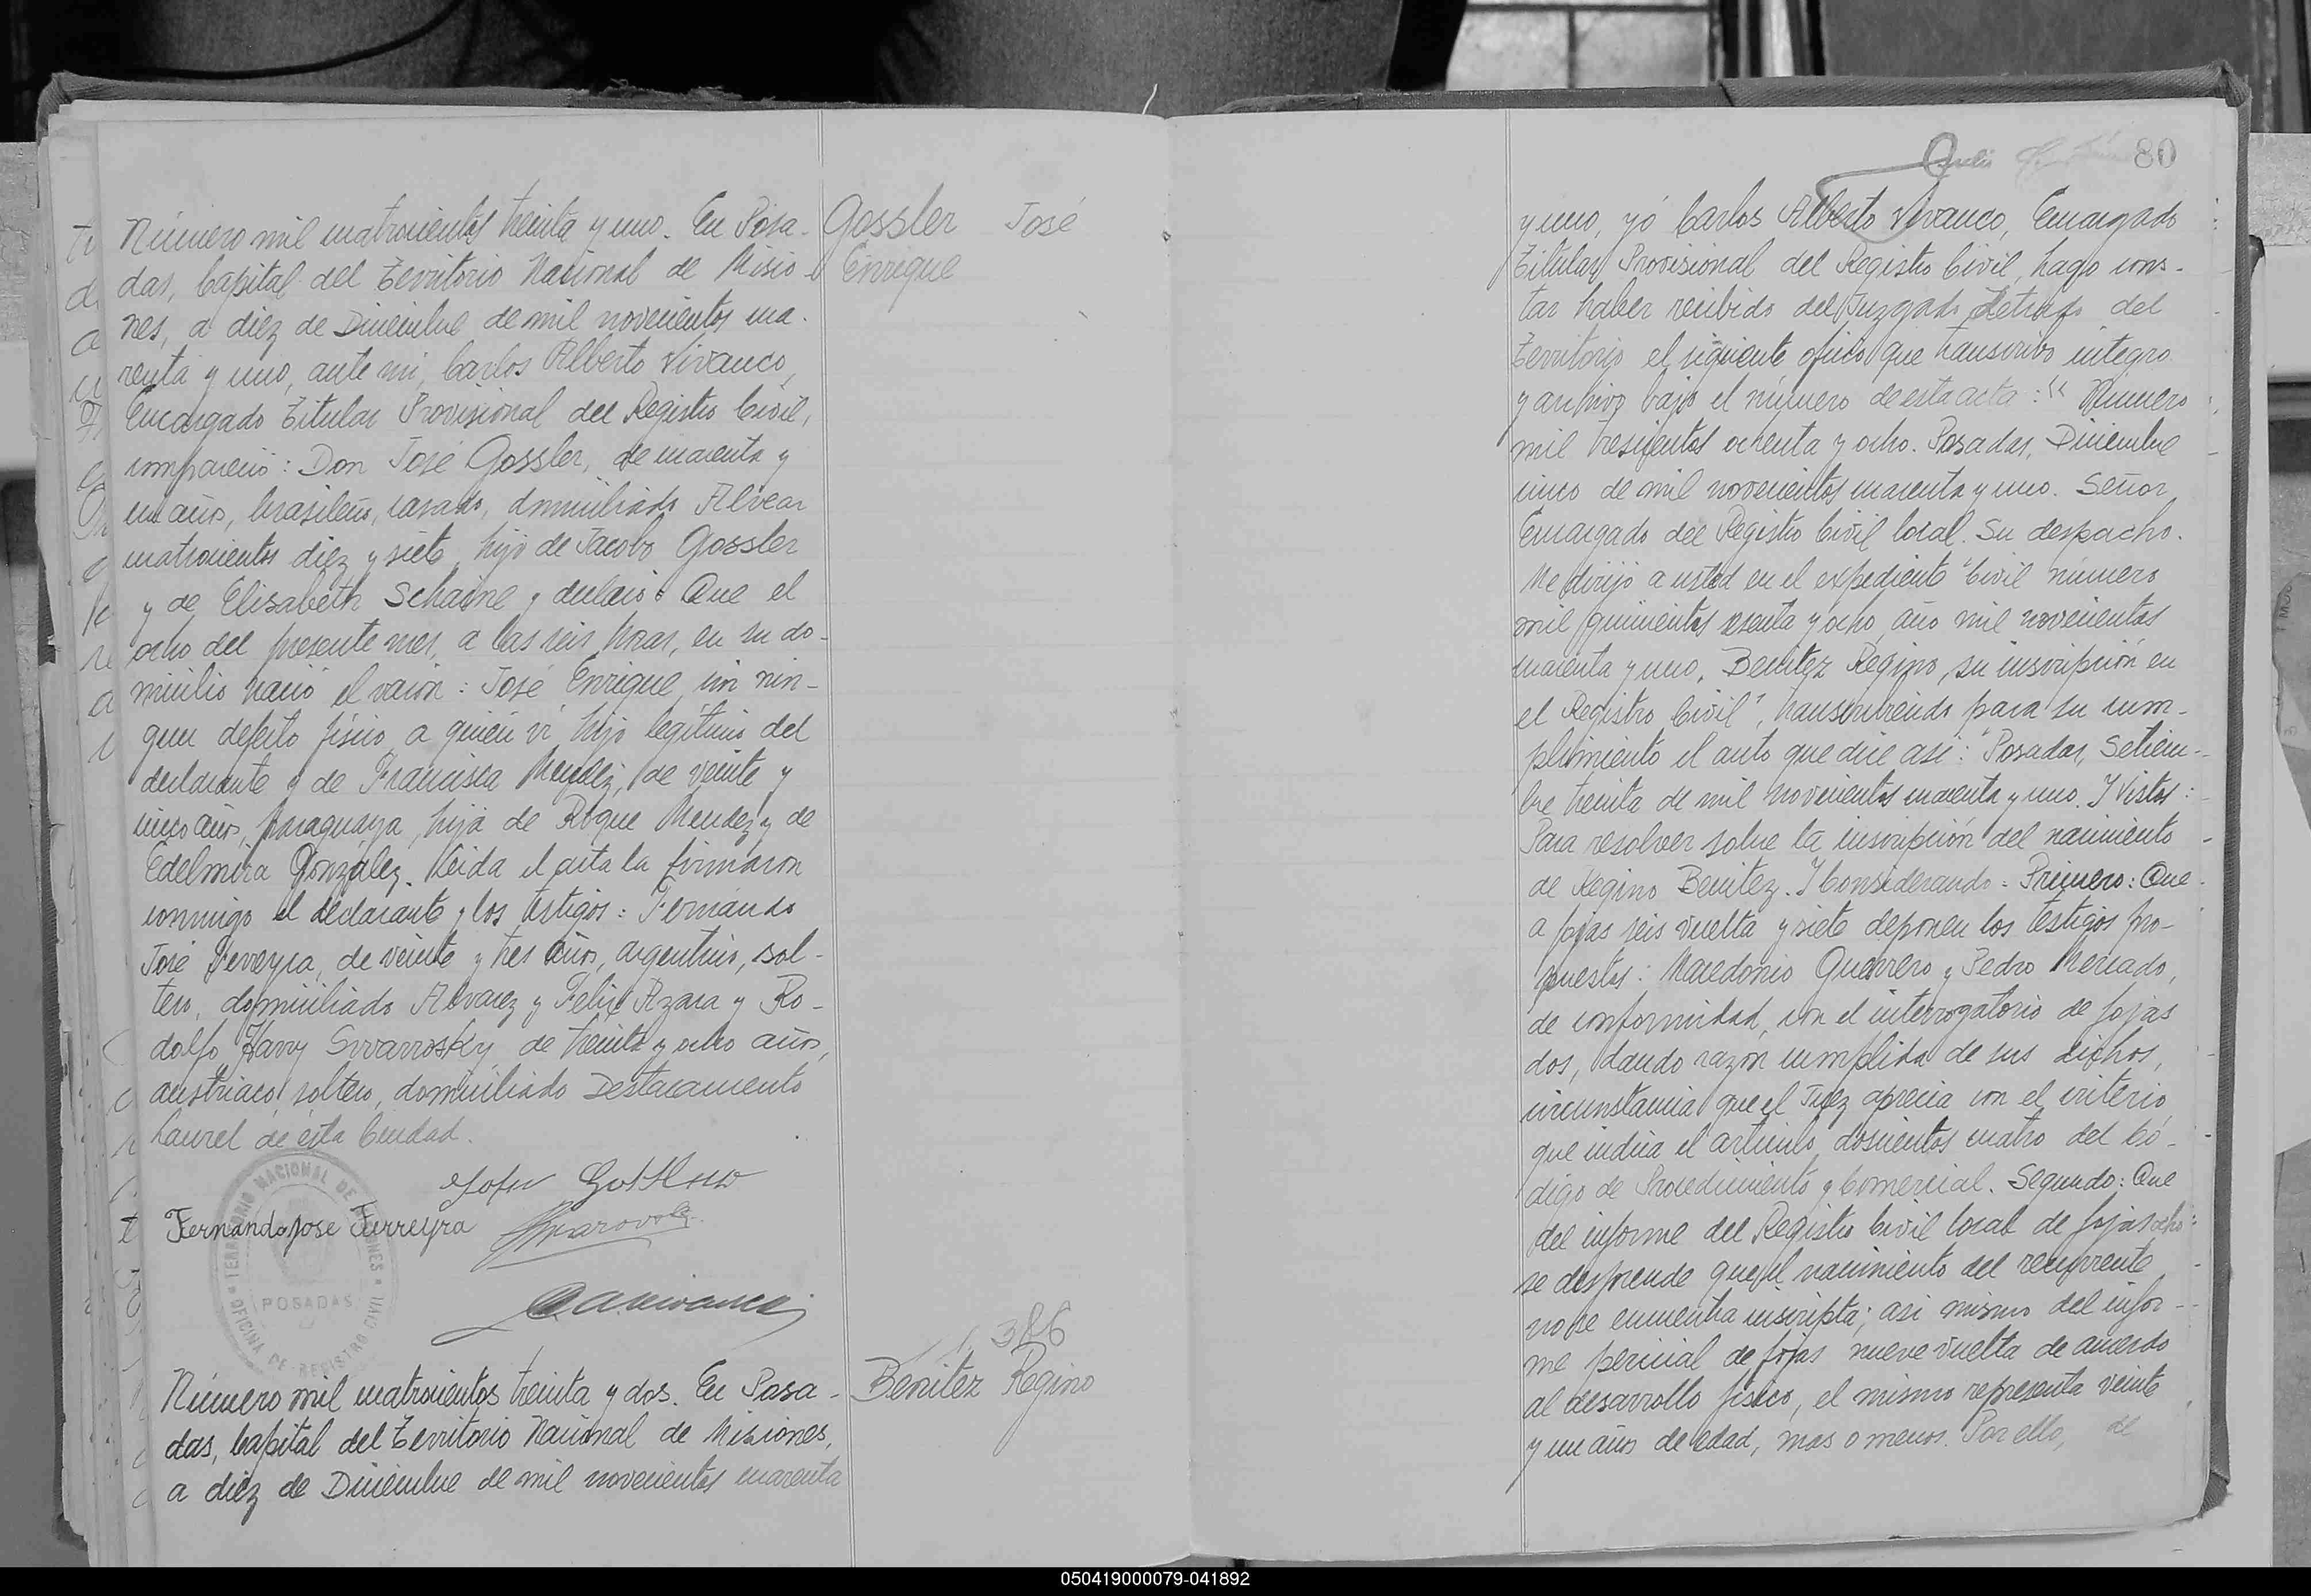 Número mil cuatrocientos treinta y uno. En Posa-
das, Capital del Territorio Nacional de Misio-
nes, a diez de Diciembre de mil novecientos cua-
renta y uno, ante mi, Carlos Alberto Vivanco,
Encargado Titular Provisional del Registro Civil,
compareció: Don José Gossler, de cuarenta y
un años, brasileño, casado, domiciliado Alvear
cuatrocientos diez y siete, hijo de Jacobo Gossler
y de Elisabeth Schaine y declaró: Que el
ocho del presente mes, a las seis horas, en su do-
micilio nació el varón: José Enrique, sin nin-
gun defecto físico a quien ví, hijo legítimo del
declarante y de Francisca Mendez, de veinte y
cinco años, paraguaya, hija de Roque Mendez y de
Edelmira González. Leida el acta la firmaron
conmigo el declarante y los testigos: Fernando
José Ferreyra, de veinte y tres años, argentino, sol-
tero, domiciliado Alvarez y Felix Azara y Ro-
dolfo Harry Svvarrosky de treinta y ocho años,
austriaco, soltero, domiciliado Destacamento
Laurel de esta Ciudad.
Fernando jose Ferreyra
TERRITORIO NACIONAL DE MISIONES
POSADAS
OFICINA DE REGISTRO CIVIL
Número mil cuatrocientos treinta y dos. En Posa-
das, Capital del Territorio Nacional de Misiones,
a diez de Diciembre de mil novecientos cuarenta
Gossler José
Enrique
1,386
Benitez Regino
80
y uno, yó Carlos Alberto Vivanco, Encargado
Titular Provisional del Registro Civil, hago cons-
tar haber recibido del Juzgado Letrado del
Territorio el siguiente oficio que transcribo integro
y archivo bajo el número de esta acta: "Número
mil trescientos ochenta y ocho. Posadas, Diciembre
cinco de mil novecientos cuarenta y uno. Señor
Encargado del Registro Civil local. Su despacho.
Me dirijo a usted en el expediente "Civil número
mil quinientos sesenta y ocho, año mil novecientos
cuarenta y uno, Benitez Regino, su inscripción en
el Registro Civil", transcribiendo para su cum-
plimiento el auto que dice asi: "Posadas, Setiem-
bre treinta de mil novecientos cuarenta y uno. Y Vistos:
Para resolver sobre la inscripción del nacimiento
de Regino Benitez. Y Considerando: Primero: Que
a fojas seis vuelta y siete deponen los testigos pro-
puestos: Macedonio Guerrero y Pedro Mercado,
de conformidad con el interrogatorio de fojas
dos, dando razón cumplida de sus dichos,
circunstancia que el Juez aprecia con el criterio
que indica el artículo doscientos cuatro del Có-
digo de Procedimiento y Comercial. Segundo: Que
del informe del Registro Civil local de fojas ocho
se desprende que el nacimiento del recurrente
no se encuentra inscripta; asi mismo del infor-
me pericial de fojas nueve vuelta de acuerdo
al desarrollo físico, el mismo representa veinte
y un años de edad, mas o menos. Por ello, de
050419000079-041892